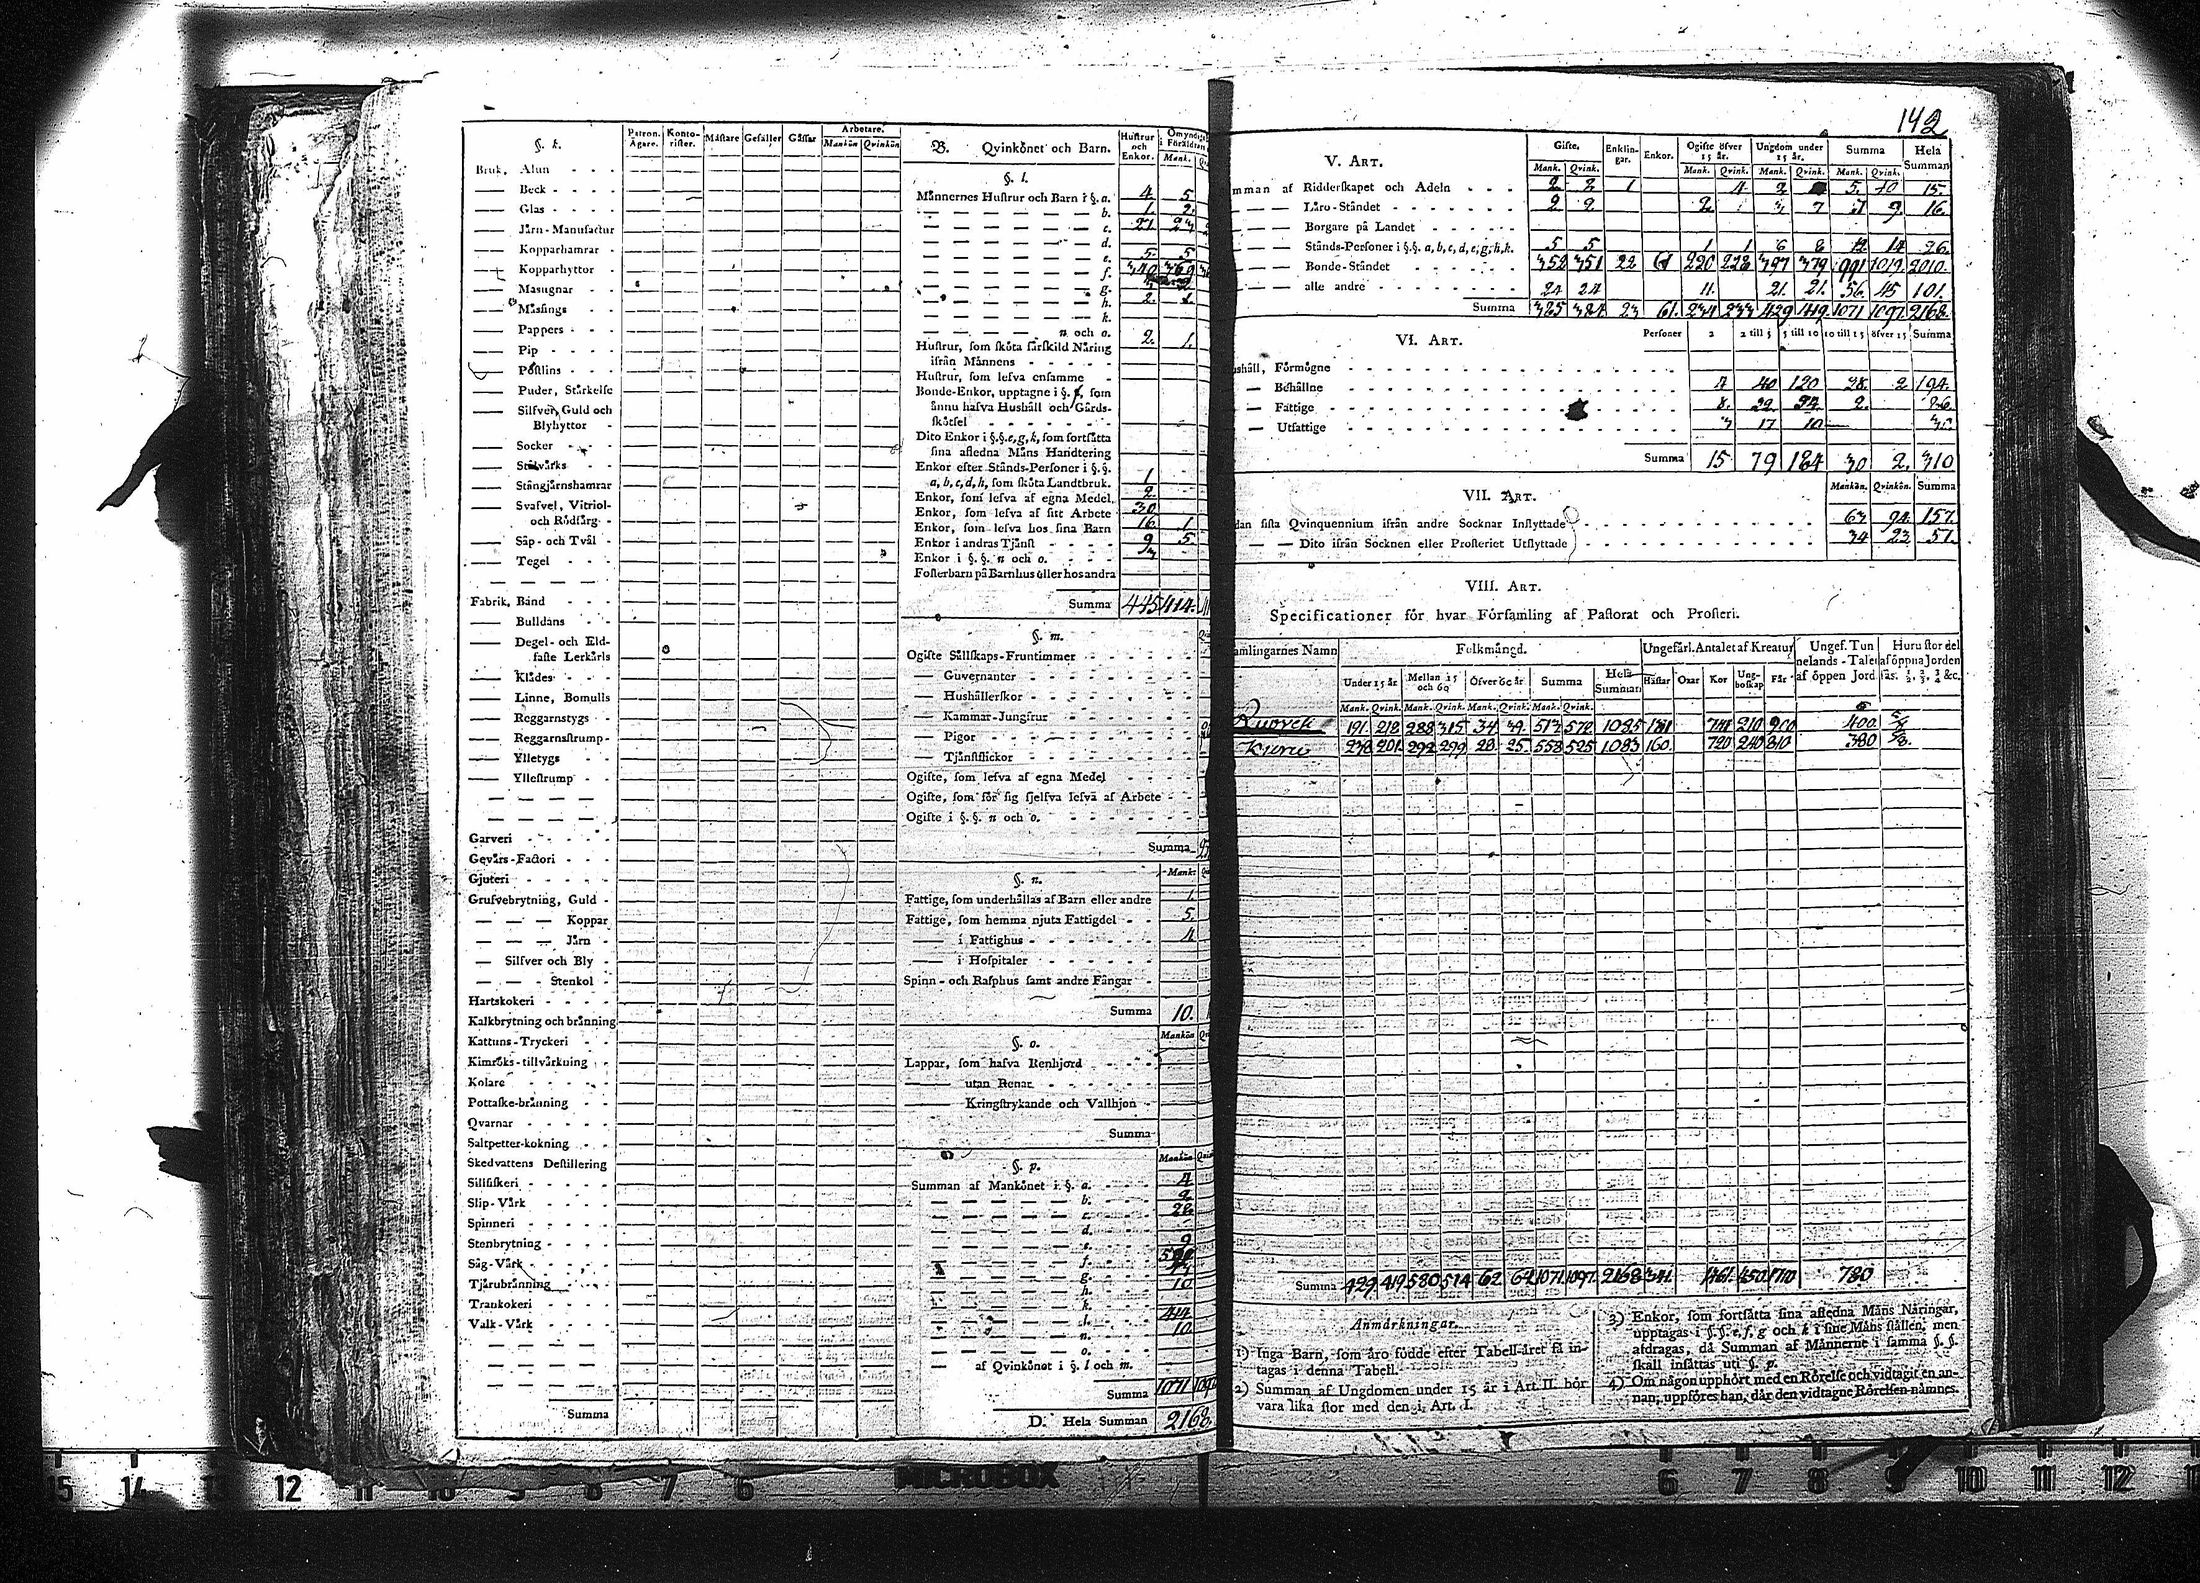 142
§. k.
Patron. Ägare.
Konto-rister.
Måstare
Gesäller
Gåssar
Arbetare.
Mankön Qvinkön
Bruk, Alun
— Beck
— Glas
— Järn-Manufactur
— Kopparhamrar
— Kopparhyttor
— Masugnar
— Måssings
— Pappers
— Pip
— Postlins
— Puder, Stårkelse
— Silfver, Guld och
Blyhyttor
— Socker
— Stålvårks
— Stångjårnshamrar
— Svafvel, Vitriol-
och Rödfårg
— Såp- och Tvål
— Tegel
Fabrik, Band
— Bulldans
— Degel- och Eld-
faste Lerkårls
— Klådes
— Linne, Bomulls
— Reggarnstygs
— Reggarnsstrump
— Ylletygs
— Yllestrump
Garveri
Gevårs-Factori
Gjuteri
Grufvebrytning, Guld
— — — Koppar
— — — Jårn
— Silfver och Bly
— — — Stenkol
Hartskokeri
Kalkbrytning och brånning
Kattuns-Tryckeri
Kimröks-tillvårkning
Kolare
Pottaske-brånning
Qvarnar
Saltpetter-kokning
Skedvattens Destillering
Sillfiskeri
Slip-Vårk
Spinneri
Stenbrytning
Såg-Vårk
Tjårubrånning
Trankokeri
Valk-Vårk
Summa
B. Qvinkönet och Barn.
Hustrur och Enkor.
Mank.
§. l.
Månnernes Hustrur och Barn i §. a. 4. 5
b. 1. 2.
c. 27. 23
d.
e. 5. 5
f. 340 369
g.
h. 2. 1.
k.
n och o. 2. 1.
Hustrur, som sköta sårskild Nåring
ifrån Månnens
Hustrur, som lefva ensamme
Bonde-Enkor, upptagne i §. f, som
ånnu hafva Hushåll och Gårds-
skötsel
Dito Enkor i §.§. e, g, k, som fortsåtta
sina afledna Måns Handtering
Enkor efter Stånds-Personer i §.§.
a, b, c, d, h, som sköta Landtbruk. 1
Enkor, som lefva af egna Medel. 2.
Enkor, som lefva af sitt Arbete 30
Enkor, som lefva hos sina Barn 16. 1
Enkor i andras Tjånst 9 5
Enkor i §.§. n och o. 3
Fosterbarn på Barnhus eller hos andra
Summa 445 414.
§. m.
Ogifte Sållskaps-Fruntimmer
— Guvernanter
— Hushållerskor
— Kammar-Jungfrur
— Pigor
— Tjånstflickor
Ogifte, som lefva af egna Medel
Ogifte, som för sig sjelfva lefva af Arbete
Ogifte i §.§. n och o.
Summa
§. n.
Mank.
Fattige, som underhållas af Barn eller andre 1.
Fattige, som hemma njuta Fattigdel 5.
— i Fattighus 4
— i Hospitaler
Spinn- och Rasphus samt andre Fångar
Summa 10.
§. o.
Mankön
Lappar, som hafva Renhjord
— utan Renar
— Kringstrykande och Vallhjon
Summa
§. p.
Mankön
Summan af Mankönet i §. a. 4
b. 2
c. 28
d.
e. 9
f.
g.
h. 10
k.
l. 414
n. 10
o.
— af Qvinkönet i §. l och m.
Summa 1071
D. Hela Summan 2168.
V. Art.
Gifte. Mank. Qvink.
Enklin-gar.
Enkor.
Ogifte öfver 15 år. Mank. Qvink.
Ungdom under 15 år. Mank. Qvink.
Summa Mank. Qvink.
Hela Summan
mman af Ridderskapet och Adeln 2 2 1 4 2 5. 10 15.
— — Låro-Ståndet 2 2 2 3 7 7 9. 16.
— — Borgare på Landet
— — Stånds-Personer i §.§. a, b, c, d, e, g, h, k. 5 5 1 1 6 8 12 14 26.
— — Bonde-Ståndet 352 351 22 61 220 228 397 379 991 1019. 2010.
— — alle andre 24 24 11. 21. 21. 56. 45 101.
Summa 385 384 23 61. 234 233 429 419 1071 1097 2168.
VI. Art.
Personer 2 2 till 5 5 till 10 10 till 15 öfver 15 Summa
ushåll, Förmögne
— Behållne 4 40 120 28. 2 194.
— Fattige 8. 22 2.
— Utfattige 3 17 10 30
Summa 15 79 184 30 2. 310
VII. Art.
Mankön. Qvinkön. Summa
dan sista Qvinquennium ifrån andre Socknar Inflyttade 63. 94. 157.
— — Dito ifrån Socknen eller Prosteriet Utflyttade 34 23. 57.
VIII. Art.
Specificationer för hvar Församling af Pastorat och Prosteri.
amlingarnes Namn
Folkmångd.
Under 15 år
Mellan 15 och 60
Öfver 60 år
Summa
Hela Summan
Mank. Qvink. Mank. Qvink. Mank. Qvink. Mank. Qvink.
Ungefårl. Antalet af Kreatur
Håstar Oxar Kor Ung-boskap Får
Ungef. Tun
nelands-Talet
af öppen Jord
Huru stor del
af öppna Jorden
Ruovesi 191. 218 288 315 34 39. 513 572 1085 181 741 210 900 400.
Kuru 238 201 292 299 28. 25. 558 525 1083 160. 720 240 810 380
Summa 429 419 580 614 62 64 1071 1097. 2168 341. 1461. 450 1710 780
Anmårkningar.
1) Inga Barn, som åro födde efter Tabell-året få in-
tagas i denna Tabell.
2) Summan af Ungdomen under 15 år i Art. II. bör
vara lika stor med den i Art. I.
3) Enkor, som fortsåtta sina afledna Måns Nåringar,
upptagas i §.§. e, f, g och k i sine Måns stållen, men
afdragas, då Summan af Månnerne i samma §.§.
skall insåttas uti §. p.
4) Om någon upphört med en Rörelse och vidtagit en an-
nan, uppföres han, dår den vidtagne Rörelsen nåmnes.
MICROBOX
15 14 13 12 11 10 9 8 7 6
6 7 8 9 10 11 12